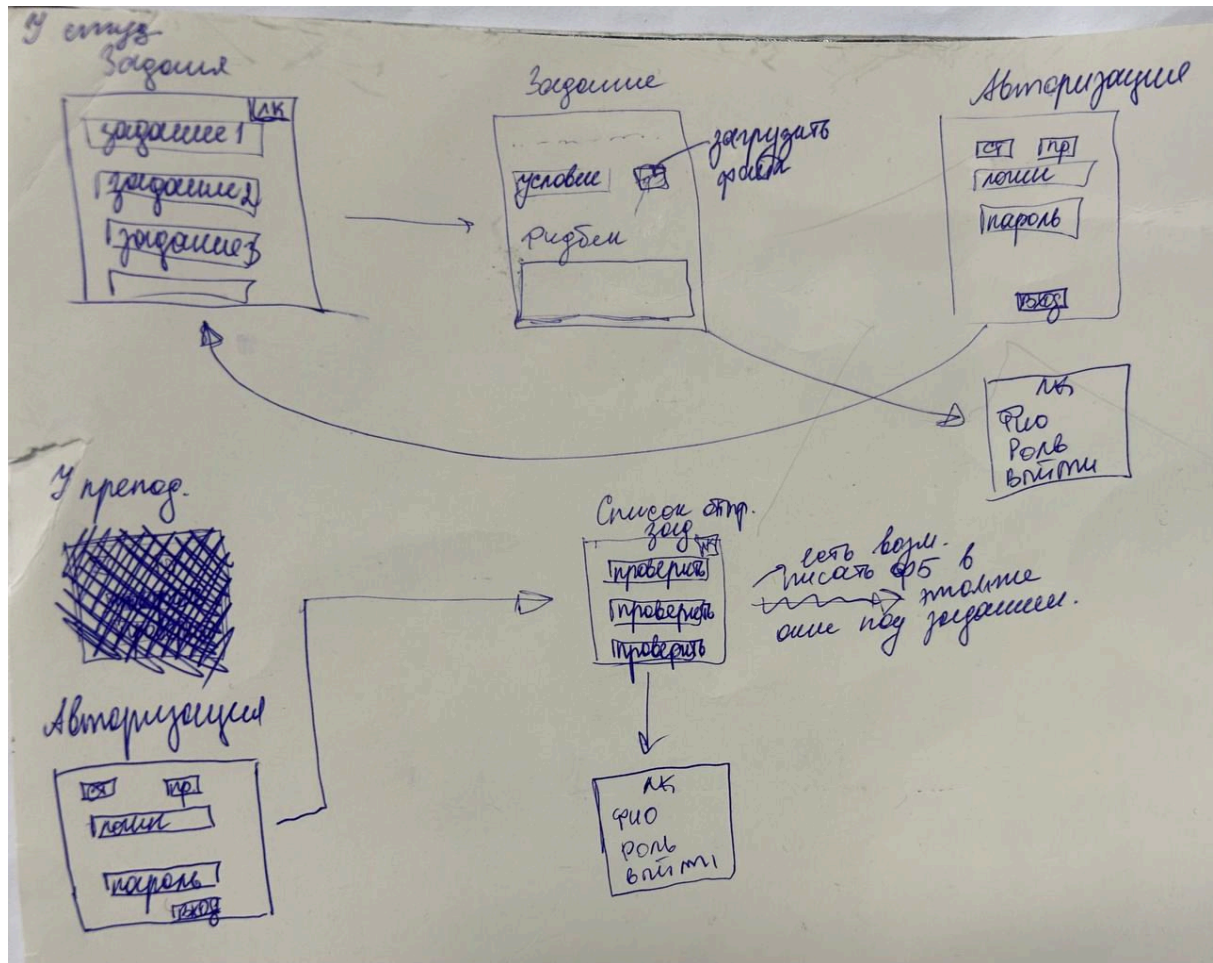 У студ
Задания
ЛК
задание 1
задание 2
задание 3
Задание
условие
загрузить
файл
фидбек
Авторизация
ст
пр
логин
пароль
вход
ЛК
ФИО
Роль
выйти
У препод.
Авторизация
ст
пр
логин
пароль
вход
Список отпр.
зад
проверить
проверить
проверить
есть возм.
писать ФБ в
этом же
окне под заданием.
ЛК
ФИО
роль
выйти